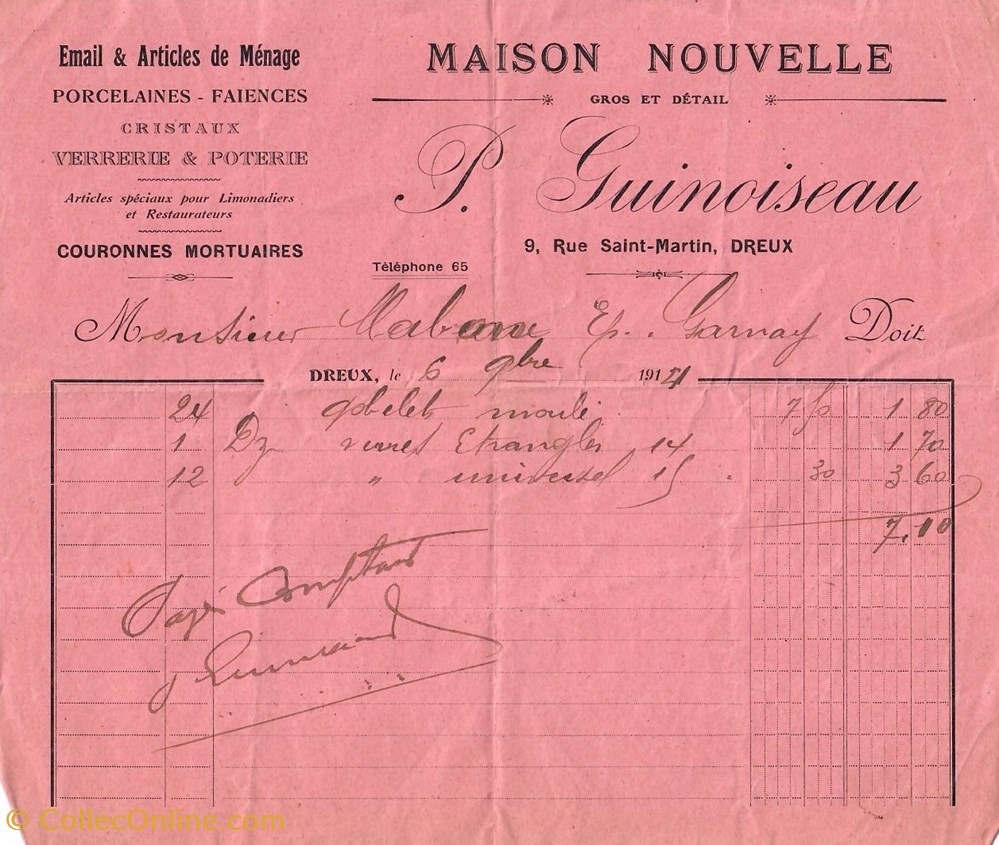 Email & Articles de Ménage
PORCELAINES - FAIENCES
CRISTAUX
VERRERIE & POTERIE
Articles spéciaux pour Limonadiers
et Restaurateurs
COURONNES MORTUAIRES
MAISON NOUVELLE
GROS ET DÉTAIL
P. Guinoiseau
9, Rue Saint-Martin, DREUX
Téléphone 65
Monsieur Ep. Garnay Doit
DREUX, le 6 9bre 191
24 gobelets moulé 7 50 1 80
1 Dz verres Etrangler 14 1 70
12 " universel 15 30 3 60
7.10
Payé Comptant
© CollecOnline.com